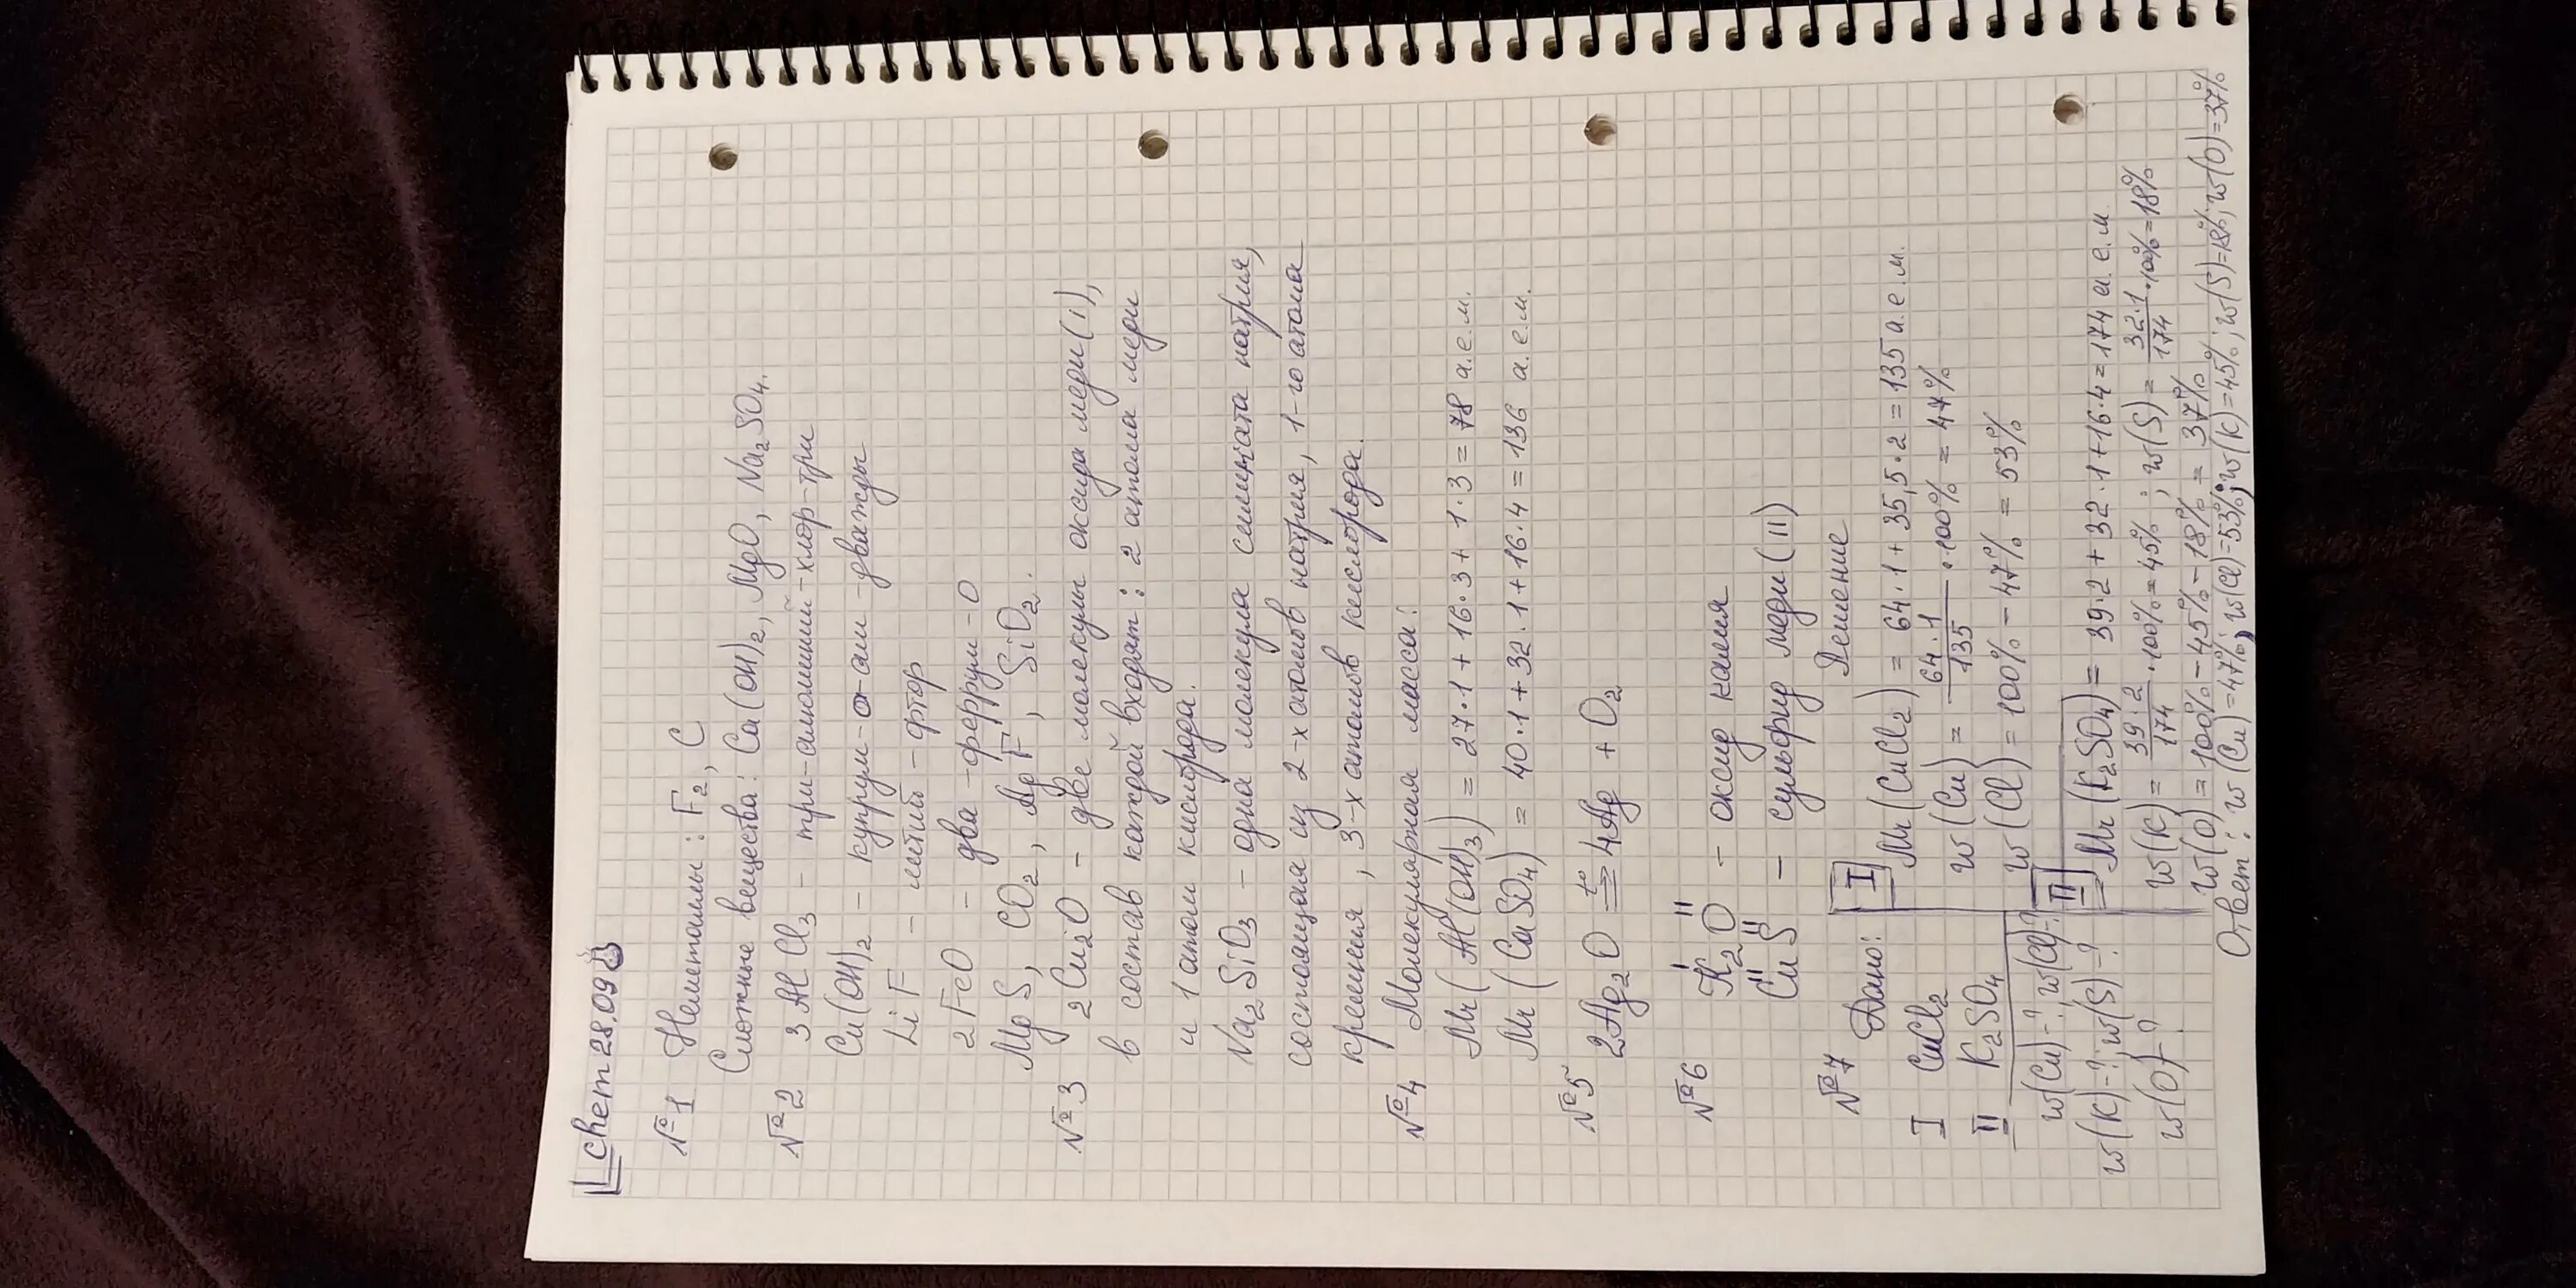 Chem 28.09
№1 Неметаллы: F₂, C
Сложные вещества: Ca(OH)₂, MgO, Na₂SO₄.
№2 3AlCl₃ – три-алюминий-хлор-три
Cu(OH)₂ – купрум-о-аш-дважды
LiF – литий-фтор
2FeO – два-феррум-О
MgS, CO₂, AgF, SiO₂.
№3 2Cu₂O – две молекулы оксида меди(i),
в состав каждой входят: 2 атома меди
и 1 атом кислорода.
Na₂SiO₃ – одна молекула силиката натрия,
состоящая из 2-х атомов натрия, 1-го атома
кремния, 3-х атомов кислорода.
№4 Молекулярная масса:
Mr(Al(OH)₃) = 27·1 + 16·3 + 1·3 = 78 а.е.м.
Mr(CaSO₄) = 40·1 + 32·1 + 16·4 = 136 а.е.м.
№5 2Ag₂O =t°= 4Ag + O₂
№6 K₂O – оксид калия
I II
CuS – сульфид меди(II)
II II
№7 Дано: Решение
I CuCl₂
II K₂SO₄
w(Cu)-?; w(Cl)-?
w(K)-?; w(S)-?
w(O)-?
I Mr(CuCl₂) = 64·1 + 35,5·2 = 135 а.е.м.
w(Cu) = 64·1/135 · 100% = 47%
w(Cl) = 100% – 47% = 53%
II Mr(K₂SO₄) = 39·2 + 32·1 + 16·4 = 174 а.е.м
w(K) = 39·2/174 · 100% = 45%; w(S) = 32·1/174 · 100% = 18%
w(O) = 100% – 45% – 18% = 37%
Ответ: w(Cu) = 47%; w(Cl) = 53%; w(K) = 45%; w(S) = 18%; w(O) = 37%